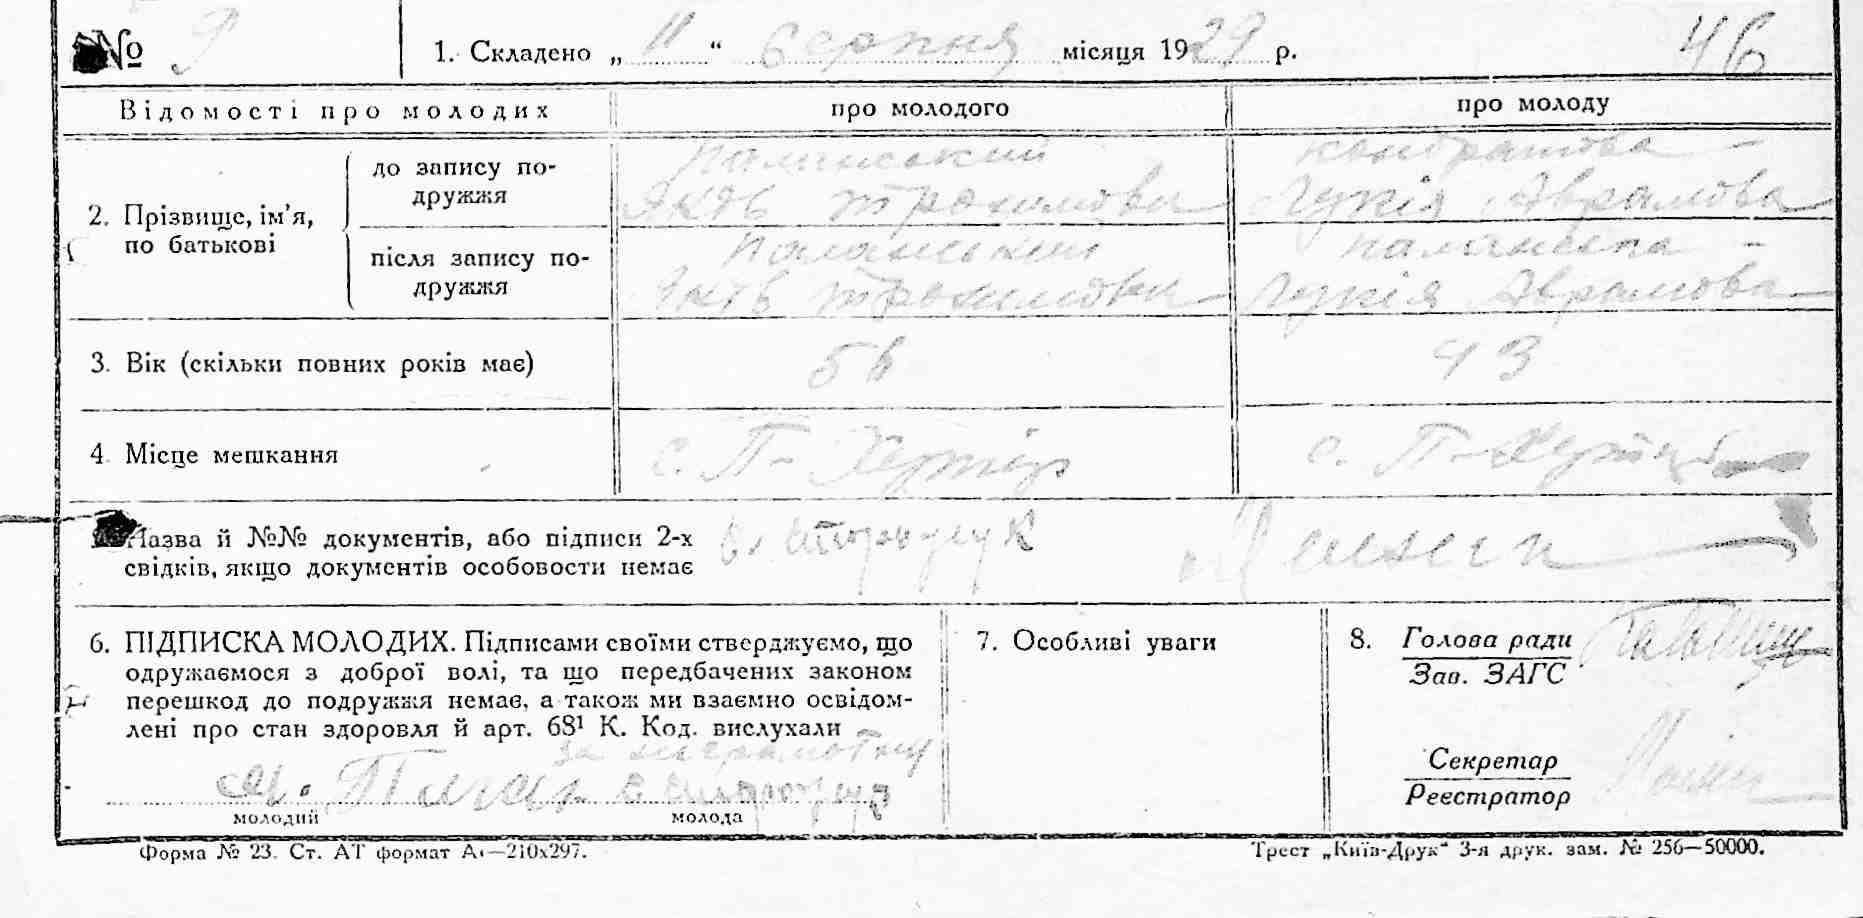 № 9
1. Складено „ 11 “ Серпня місяця 1929 р.
46
Відомості про молодих
про молодого
про молоду
2. Прізвище, ім’я, по батькові
до запису по-
дружжя
Паланський
Яків Трохимови
Кондратова
Лукія Аврамова
після запису по-
дружжя
Паланський
Яків Трохимови
Паланська
Лукія Аврамова
3. Вік (скільки повних років має)
56
43
4. Місце мешкання
с. П-
с. П-
Назва й №№ документів, або підписи 2-х
свідків, якщо документів особовости немає
6. ПІДПИСКА МОЛОДИХ. Підписами своїми стверджуємо, що
одружаємося з доброї волі, та що передбачених законом
перешкод до подружжя немає, а також ми взаємно освідом-
лені про стан здоровля й арт. 68¹ К. Код. вислухали
за неграмотну
молодий
молода
7. Особливі уваги
8. Голова ради
Зав. ЗАГС
Секретар
Реєстратор
Форма № 23. Ст. АТ формат А₄—210х297.
Трест „Київ-Друк“ 3-я друк. зам. № 256—50000.